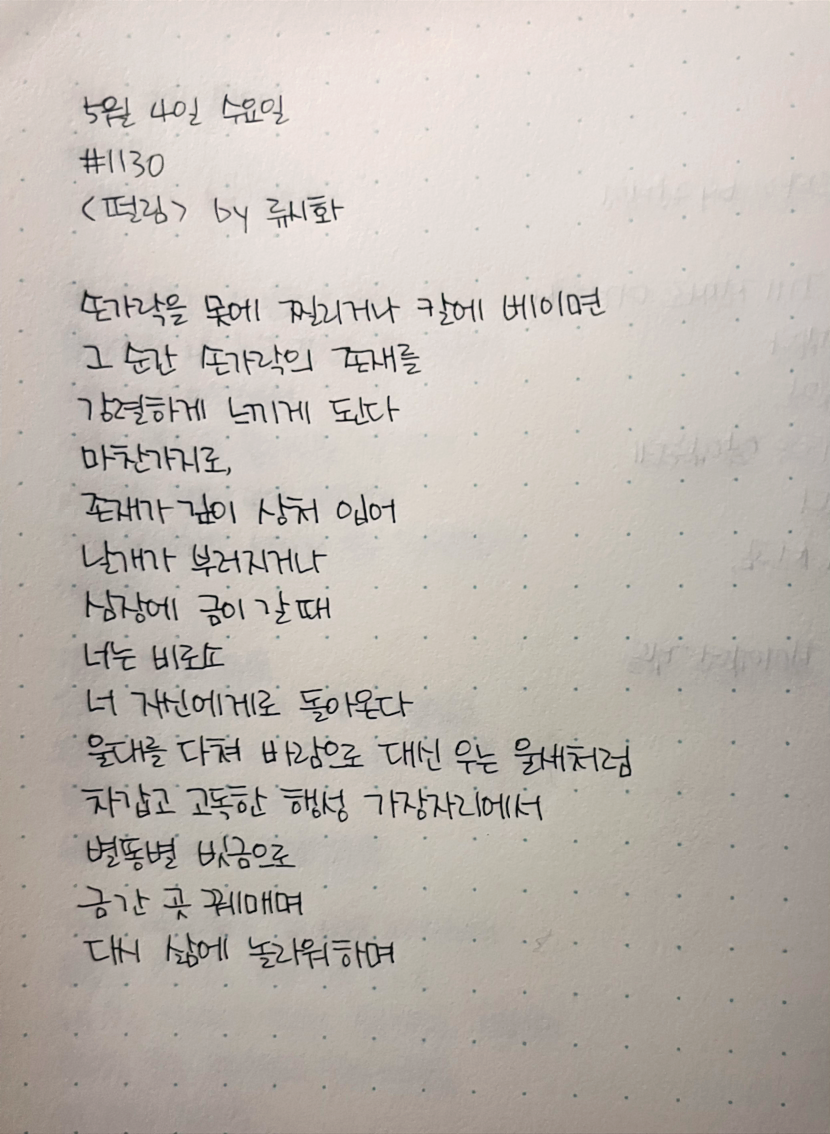 5월 4일 수요일
#1130
<떨림> by 류시화
손가락을 못에 찔리거나 칼에 베이면
그 순간 손가락의 존재를
강렬하게 느끼게 된다
마찬가지로,
존재가 깊이 상처 입어
날개가 부러지거나
심장에 금이 갈 때
너는 비로소
너 자신에게로 돌아온다
울대를 다쳐 바람으로 대신 우는 울새처럼
차갑고 고독한 행성 가장자리에서
별똥별 빗금으로
금간 곳 꿰매며
다시 삶에 놀라워하며